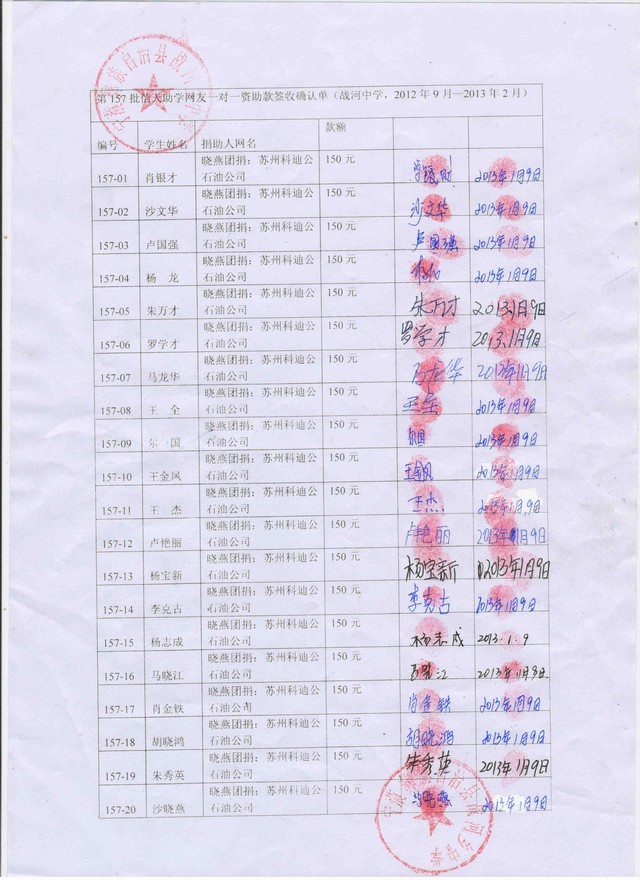 第 157 批信天助学网友一对一资助款签收确认单（战河中学，2012 年 9 月—2013 年 2 月）
编号 学生姓名 捐助人网名 款额
157-01 肖银才 晓燕团捐：苏州科迪公 150 元 2013年1月9日
石油公司
157-02 沙文华 晓燕团捐：苏州科迪公 150 元 沙文华 2013年1月9日
石油公司
157-03 卢国强 晓燕团捐：苏州科迪公 150 元 卢国强 2013年1月9日
石油公司
157-04 杨 龙 晓燕团捐：苏州科迪公 150 元 2013年1月9日
石油公司
157-05 朱万才 晓燕团捐：苏州科迪公 150 元 朱万才 2013.1月9日
石油公司
157-06 罗学才 晓燕团捐：苏州科迪公 150 元 罗学才 2013.1月9日
石油公司
157-07 马龙华 晓燕团捐：苏州科迪公 150 元 马龙华 2013年1月9日
石油公司
157-08 王 全 晓燕团捐：苏州科迪公 150 元 王全 2013年1月9日
石油公司
157-09 国 晓燕团捐：苏州科迪公 150 元 2013年1月9日
石油公司
157-10 王金凤 晓燕团捐：苏州科迪公 150 元 王金凤 2013年1月9日
石油公司
157-11 王 杰 晓燕团捐：苏州科迪公 150 元 王杰 2013年1月9日
石油公司
157-12 卢艳丽 晓燕团捐：苏州科迪公 150 元 卢艳丽 2013年1月9日
石油公司
157-13 杨宝新 晓燕团捐：苏州科迪公 150 元 杨宝新 2013年1月9日
石油公司
157-14 李克古 晓燕团捐：苏州科迪公 150 元 李克古 2013年1月9日
石油公司
157-15 杨志成 晓燕团捐：苏州科迪公 150 元 杨志成 2013.1.9
石油公司
157-16 马晓江 晓燕团捐：苏州科迪公 150 元 马晓江
石油公司
157-17 肖金铁 晓燕团捐：苏州科迪公 150 元 肖金铁 2013年1月9日
石油公司
157-18 胡晓鸿 晓燕团捐：苏州科迪公 150 元 胡晓鸿 2013年1月9日
石油公司
157-19 朱秀英 晓燕团捐：苏州科迪公 150 元 朱秀英 2013年1月9日
石油公司
157-20 沙晓燕 晓燕团捐：苏州科迪公 150 元 沙晓燕 2013年1月9日
石油公司